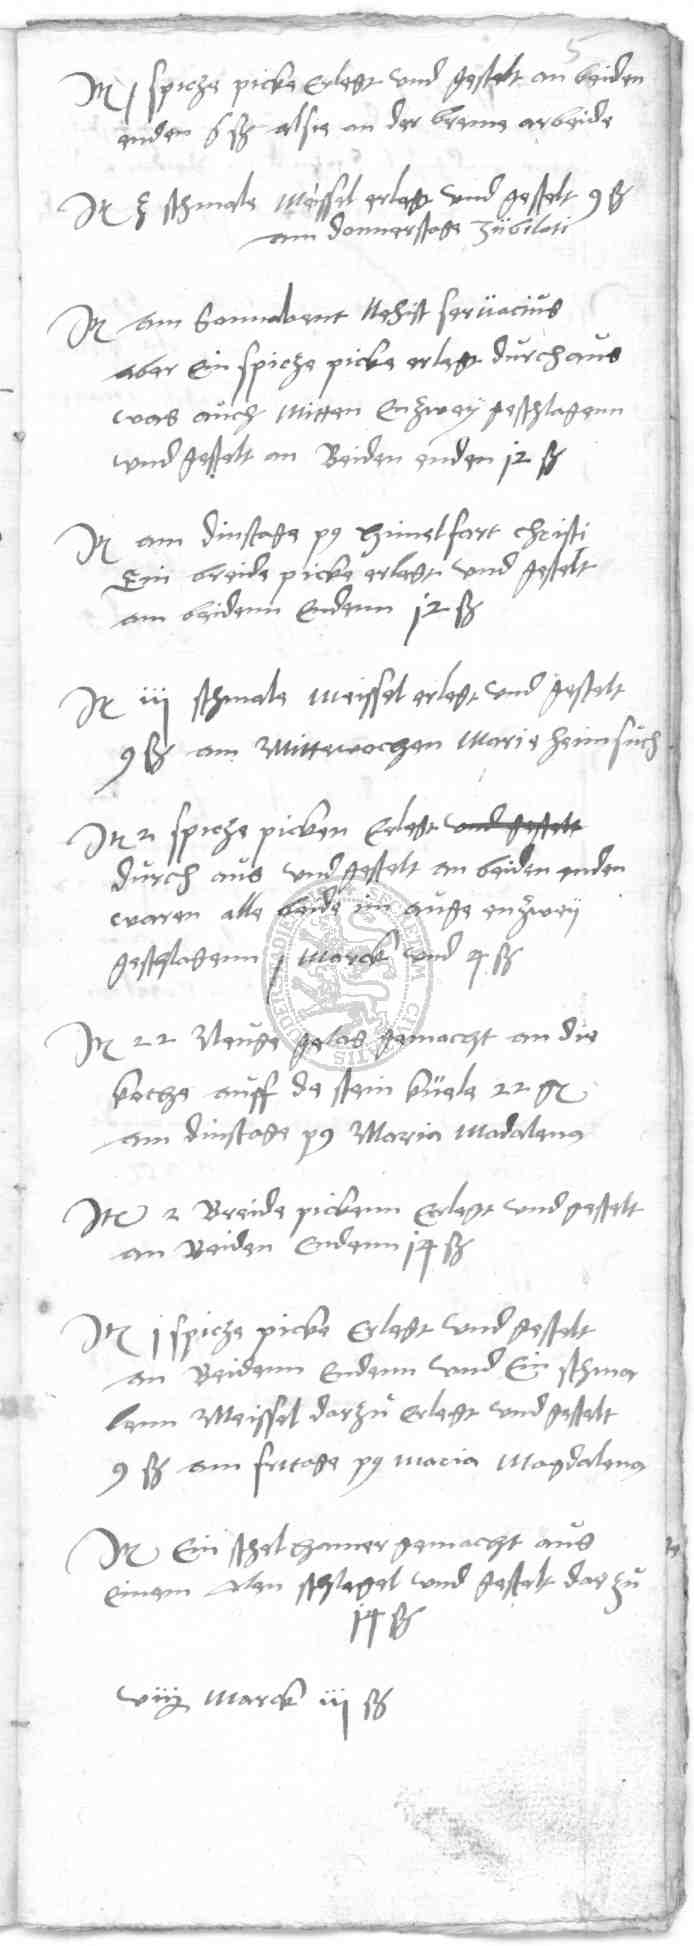 5
It 1 spicze picke erlegt und gestelt an beiden
enden 6 ß alsie an der breme arbeide
It 3 schmale Meissel erlegt und gestelt 9 ß
am donnerstage Jübilati
It am Sonnabent nehist seruacius
aber Ein spicze picke erlegt durch aus
was auch Mitten Enzwey geschlagenn
und gestelt an Beiden enden 12 ß
It am dinstage p9 himelfart christi
Ein breide picke erlegt und gestelt
am beidenn Endenn 12 ß
It iij schmale Meissel erlegt und gestelt
9 ß am Mittewochen Marie heimsuch
It 2 spicze picken Erlegt und gestelt
durch aus und gestelt an beiden enden
waren alle beide im auge enzweÿ
geschlagenn 1 Marck und 4 ß
It 22 Neuge gelas gemacht an die
karche auff de stein küele 22 gr
am dinstage p9 Maria Madalena
Ite 2 Breide pickenn Erlegt und gestelt
an Beiden Endenn 14 ß
It 1 spicze picke Erlegt und gestelt
an Beidenn Endenn und Ein schma
lenn Meissel darzu erlegt und gestelt
9 ß am fritage p9 maria Magdalena
It Ein schelhamer gemacht aus
einem alen schlegel und gestalt dar zu
14 ß
viij Marck iij ß